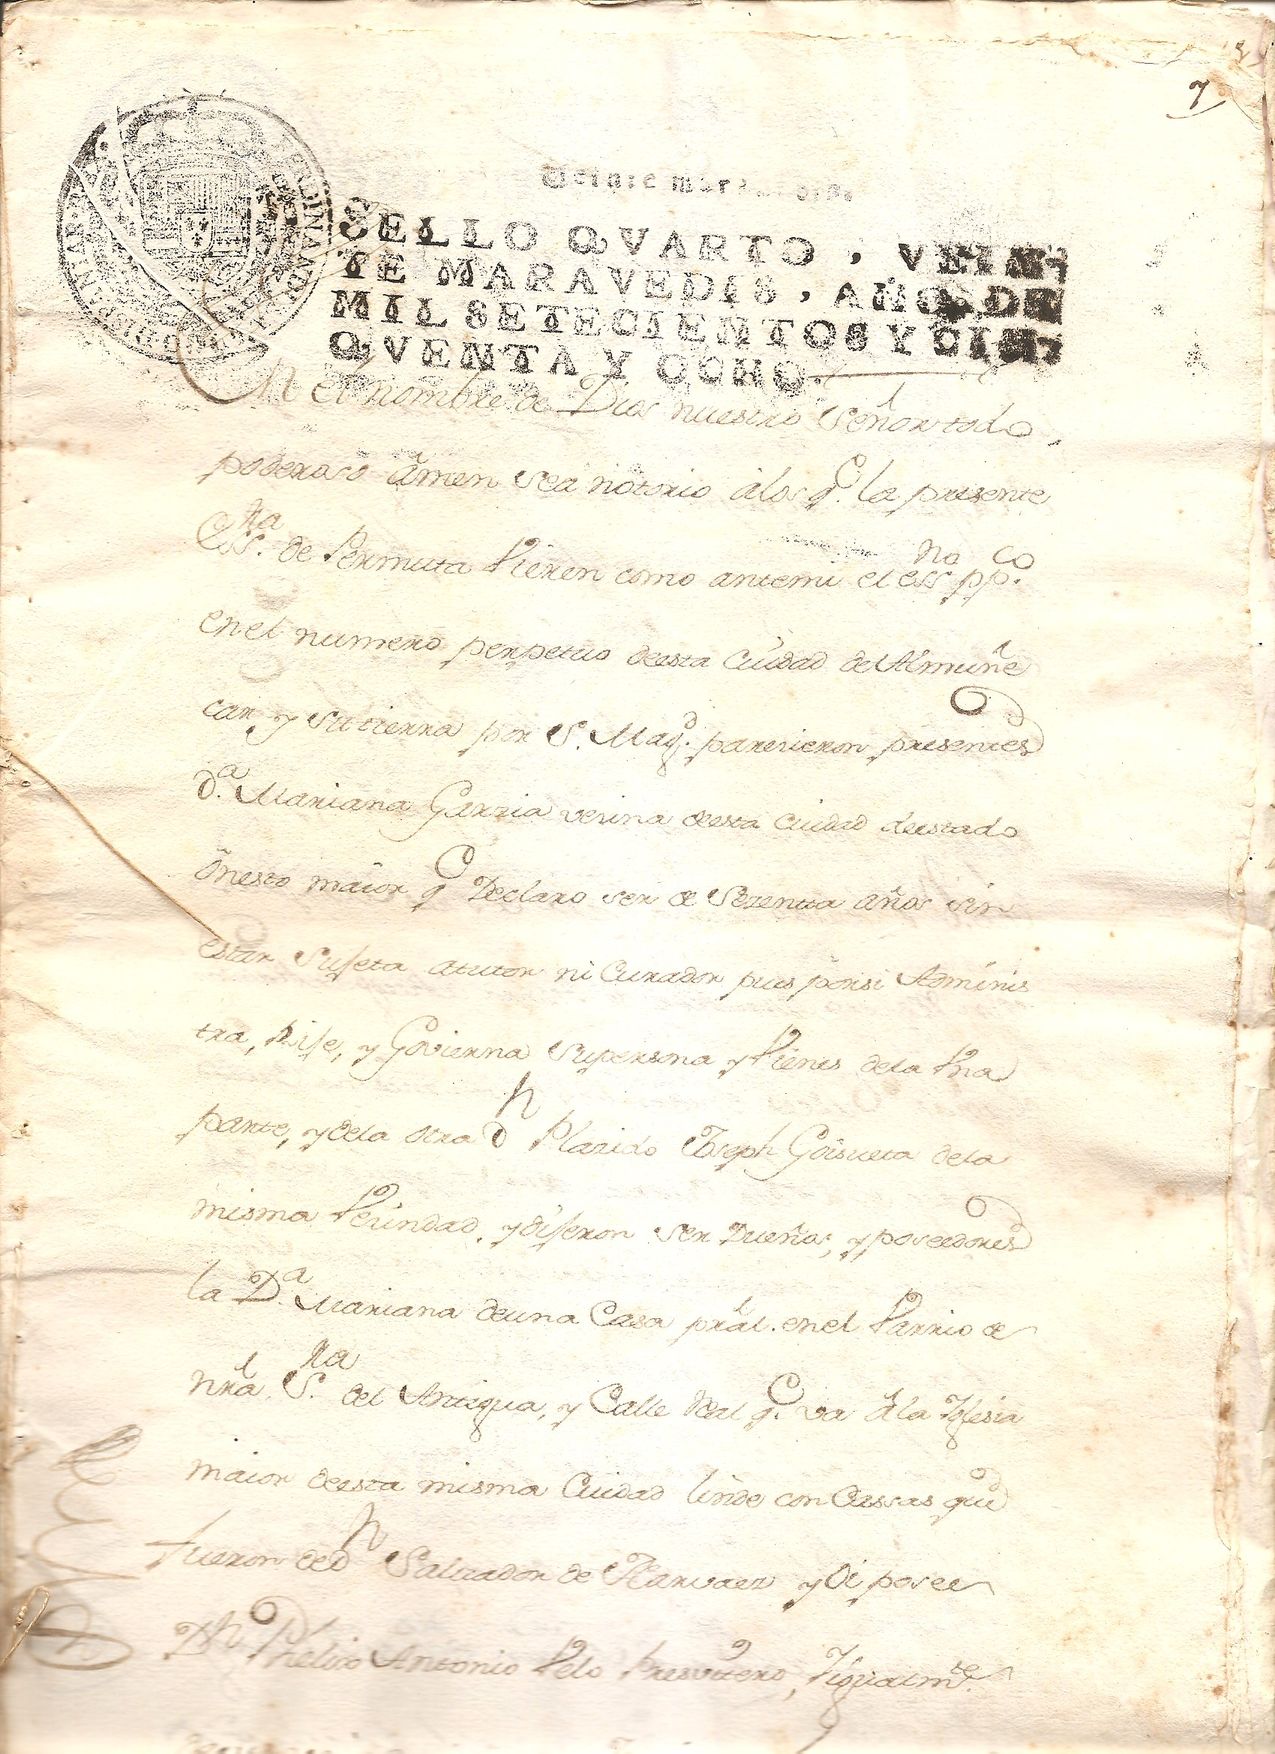 7
Veinte maravedis.
SELLO QVARTO, VEIN-
TE MARAVEDIS, AÑO DE
MIL SETECIENTOS Y CIN-
QVENTA Y OCHO.
En el nombre de Dios nuestro señor todo
poderoso âmen sea notorio âlos q.e la presente
Ess.ra de Permuta Vieren como antemi el ess.no pp.co
en el numero perpetuo deesta Ciudad de Almuñe
car, y sutierra por S. Mag.d parezieron presentes
D.a Mariana Garzia vezina deesta Ciudad de estado
ônesto maior q.e Declaro ser de Sezenta años sin
estar Sujeta atutor ni Curador pues porsi Adminis
tra, Rije, y Govierna Supersona y Vienes dela Vna
parte, y dela otra D.n Plazido Joseph Goisueta dela
misma Vezindad, y dijeron ser Dueños, y poseedores
la D.a Mariana deuna Casa pral. en el Varrio de
nrâ. S.ra del Antigua, y Calle Real q.e va âla Yglesia
maior deesta misma Ciudad linde con Cassas que
fueron de D.n Salvador de Narvaez y oi posee
D.n Phelipe Antonio Velo Presvitero, Yigualm.te